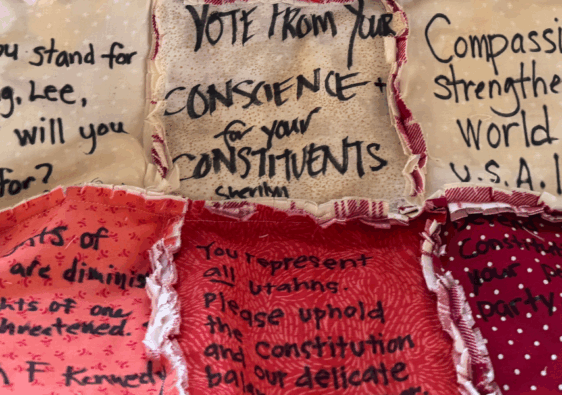 ou stand for
g, Lee,
will you
for?
VOTE FROM YOUR
CONSCIENCE +
for your
CONSTITUENTS
Sherilyn
Compassi
strengthe
World
U.S.A.!
ts of
are diminis
hts of one
hreatened.
F Kennedy
You represent
all Utahns.
Please uphold
the Constitution
and our delicate
bal
Constitu
your pa
party